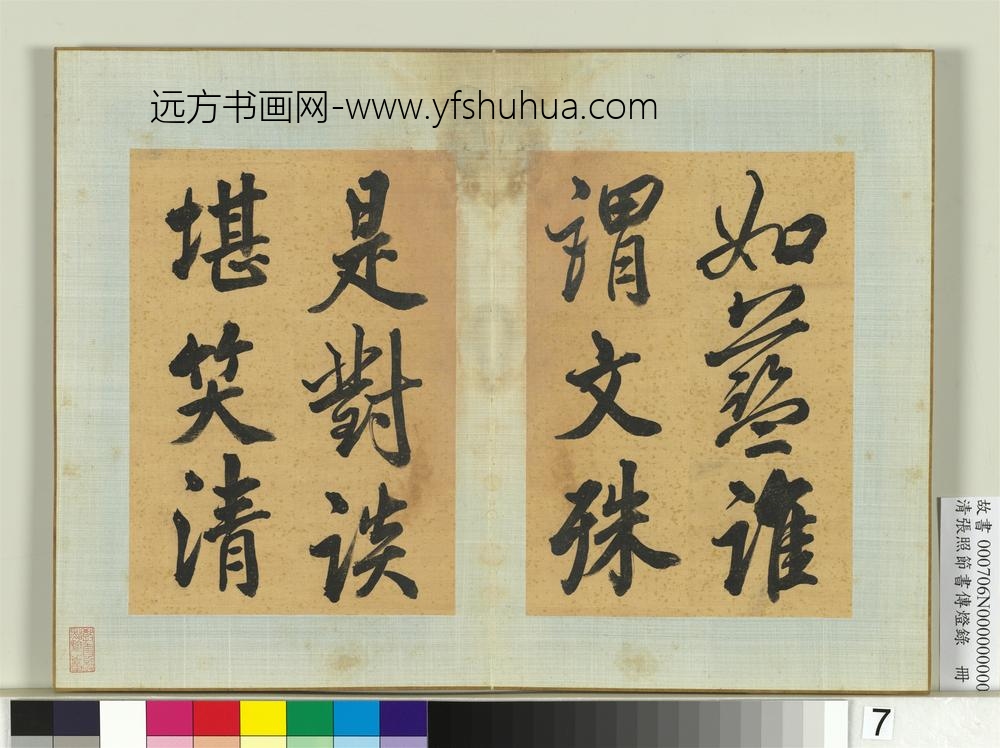 远方书画网-www.yfshuhua.com
如藍誰
謂文殊
是對談
堪笑清
故書 000706N000000000
清張照節書傳燈錄 冊
7